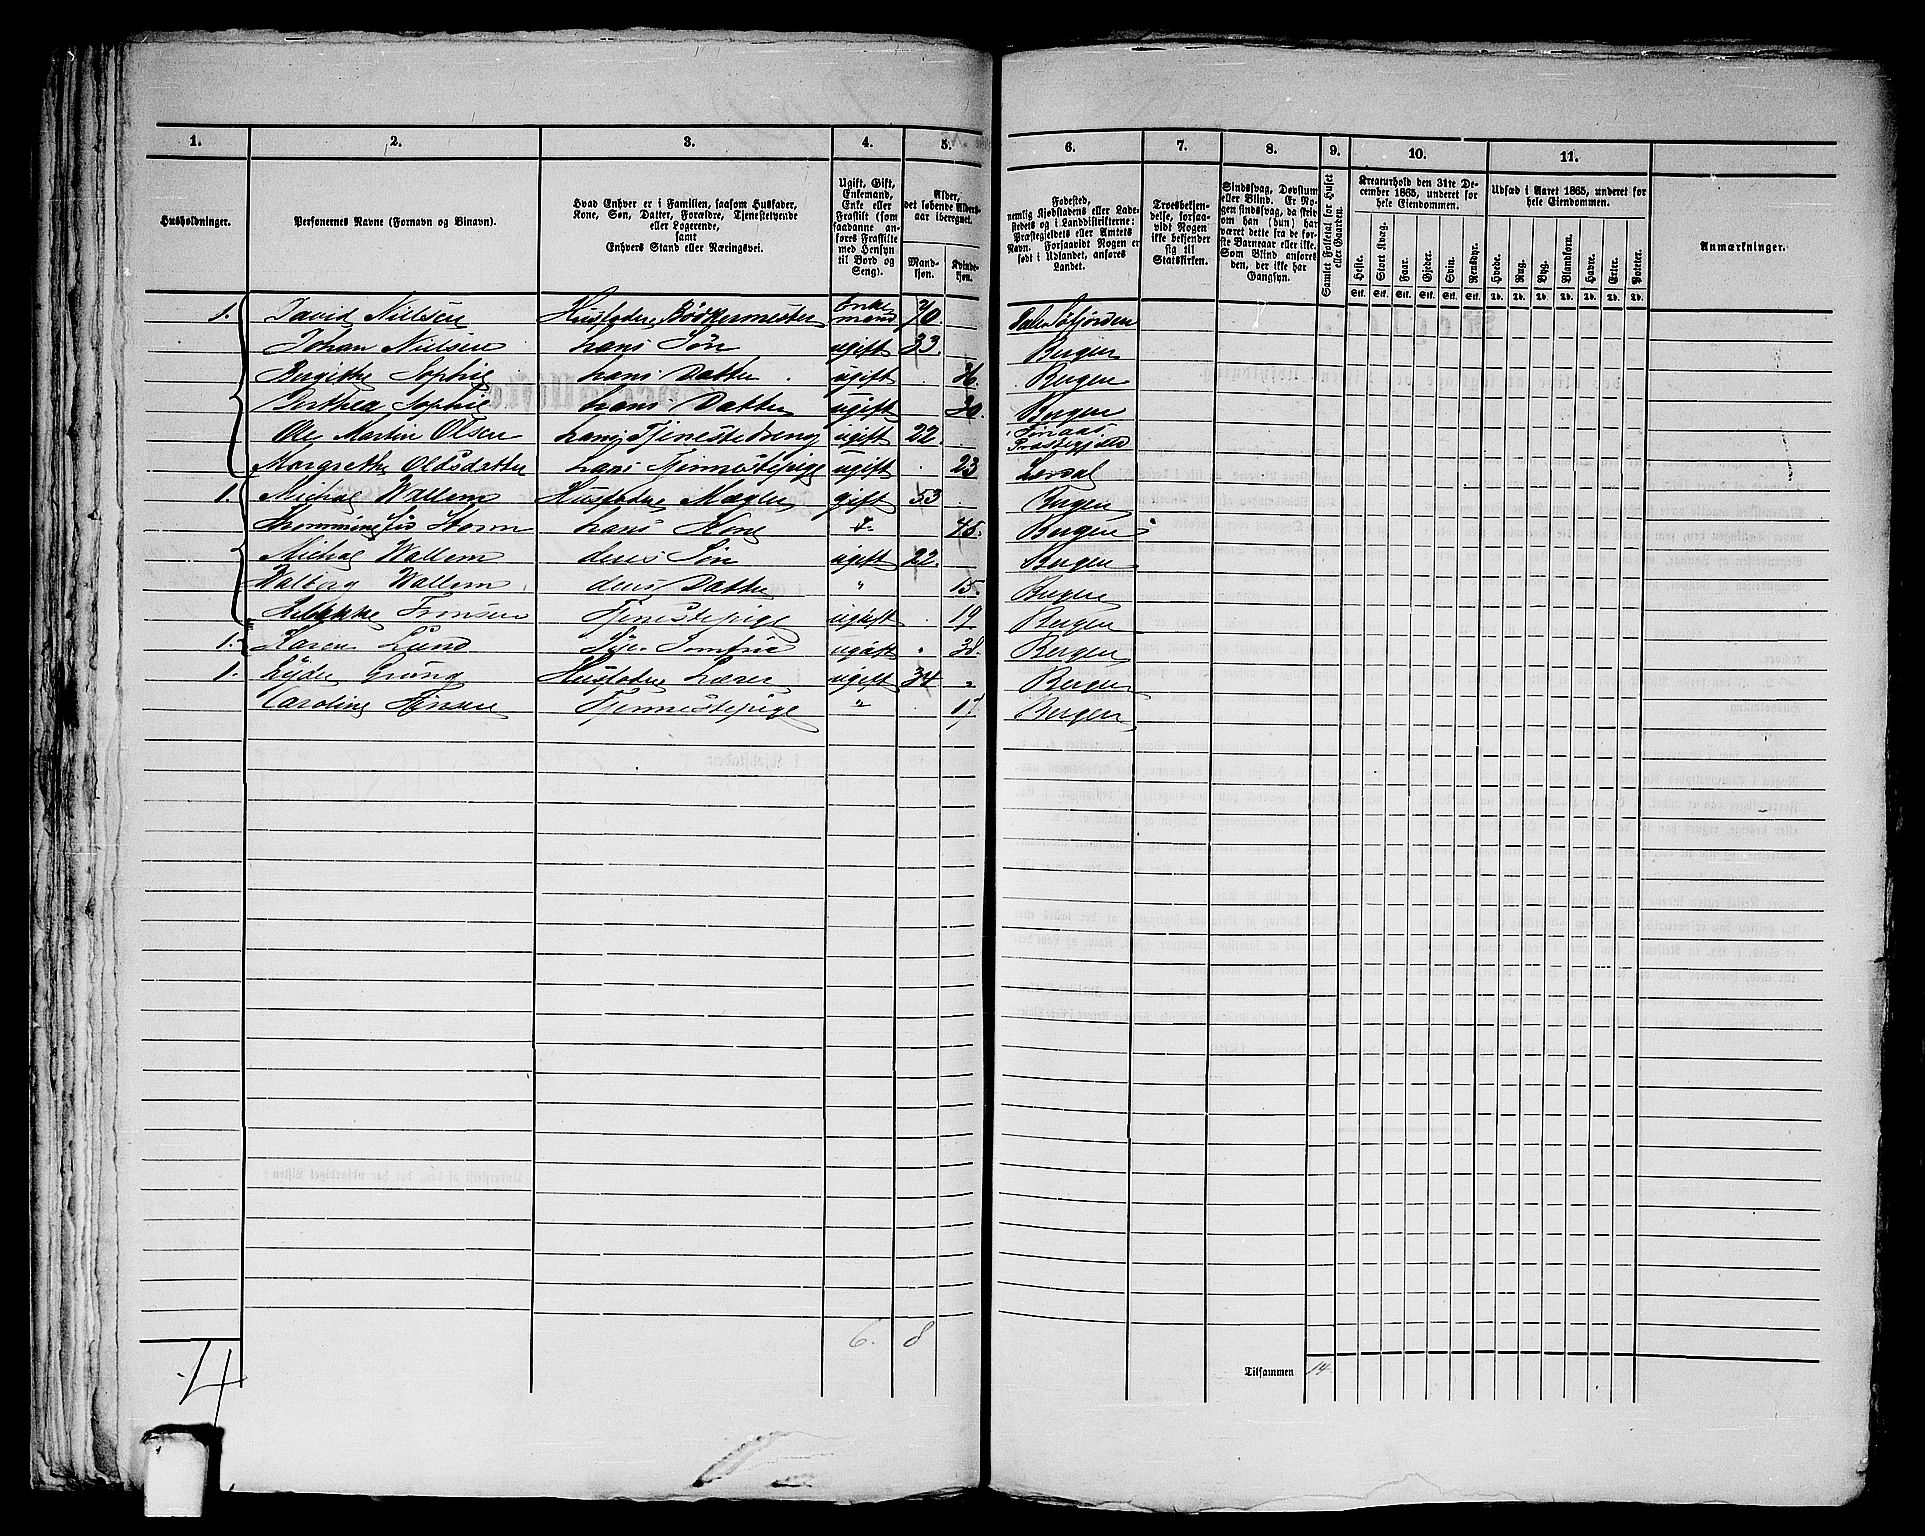 1. 2. 3. 4. 5. 6. 7. 8. 9. 10. 11.
Husholdninger.
Personernes Navne (Fornavn og Binavn).
Hvad Enhver er i Familien, saasom Husfader, Kone, Søn, Datter, Forældre, Tjenestetyende eller Logerende, samt Enhvers Stand eller Næringsvei.
Ugift, Gift, Enkemand, Enke eller Fraskilt (som saadanne anføres Fraskilte med Hensyn til Bord og Seng).
Alder, det løbende Aldersaar iberegnet.
Mandkjøn. Kvindekjøn.
Fødested, nemlig Kjøbstadens eller Ladestedets og i Landdistrikterne: Præstegjeldets eller Amtets Navn. Forsaavidt Nogen er født i Udlandet, anføres Landet.
Troesbekjendelse, forsaavidt Nogen ikke bekjender sig til Statskirken.
Sindssvag, Døvstum eller Blind. Er Nogen sindssvag, da skrives om han (hun) har været dette fra de første Barneaar eller ikke. Som Blind anføres den, der ikke har Gangsyn.
Samlet Folketal for Huset eller Gaarden.
Kreaturhold den 31te December 1865, underet for hele Eiendommen.
Heste. Stort Kvæg. Faar. Gjeder. Svin. Rensdyr.
Stk. Stk. Stk. Stk. Stk. Stk.
Udsæd i Aaret 1865, underet for hele Eiendommen.
Hvede. Rug. Byg. Blandkorn. Havre. Erter. Poteter.
Td. Td. Td. Td. Td. Td. Td.
Anmærkninger.
1. David Nielsen Husfader Bødkermester Enkemand 70.
Johan Nielsen hans Søn ugift 33. Bergen
Bergitte Sophie hans Datter ugift 36. Bergen
Berthea Sophie hans Datter ugift 30. Bergen
Ole Martin Olsen hans Tjenestedreng ugift 22. Finaas Præstegjeld
Margrethe Oldsdatter hans Tjennestepige ugift 23 Lerdal
1. Michal Wallem Husfader Mægler gift 53 Bergen
Storm hans Kone 45. Bergen
Michal Wallem deres Søn ugift 22. Bergen
Valborg Wallem deres Datter " 15. Bergen
Tjenestepige ugift 19 Bergen
1. Karen Lund ugift " 38. Bergen
1. Lyder Grung Husfader Lærer ugift 34 " Bergen
Caroline Jensen Tjennestepige " 17 Bergen
6. 8
Tilsammen 14.
14